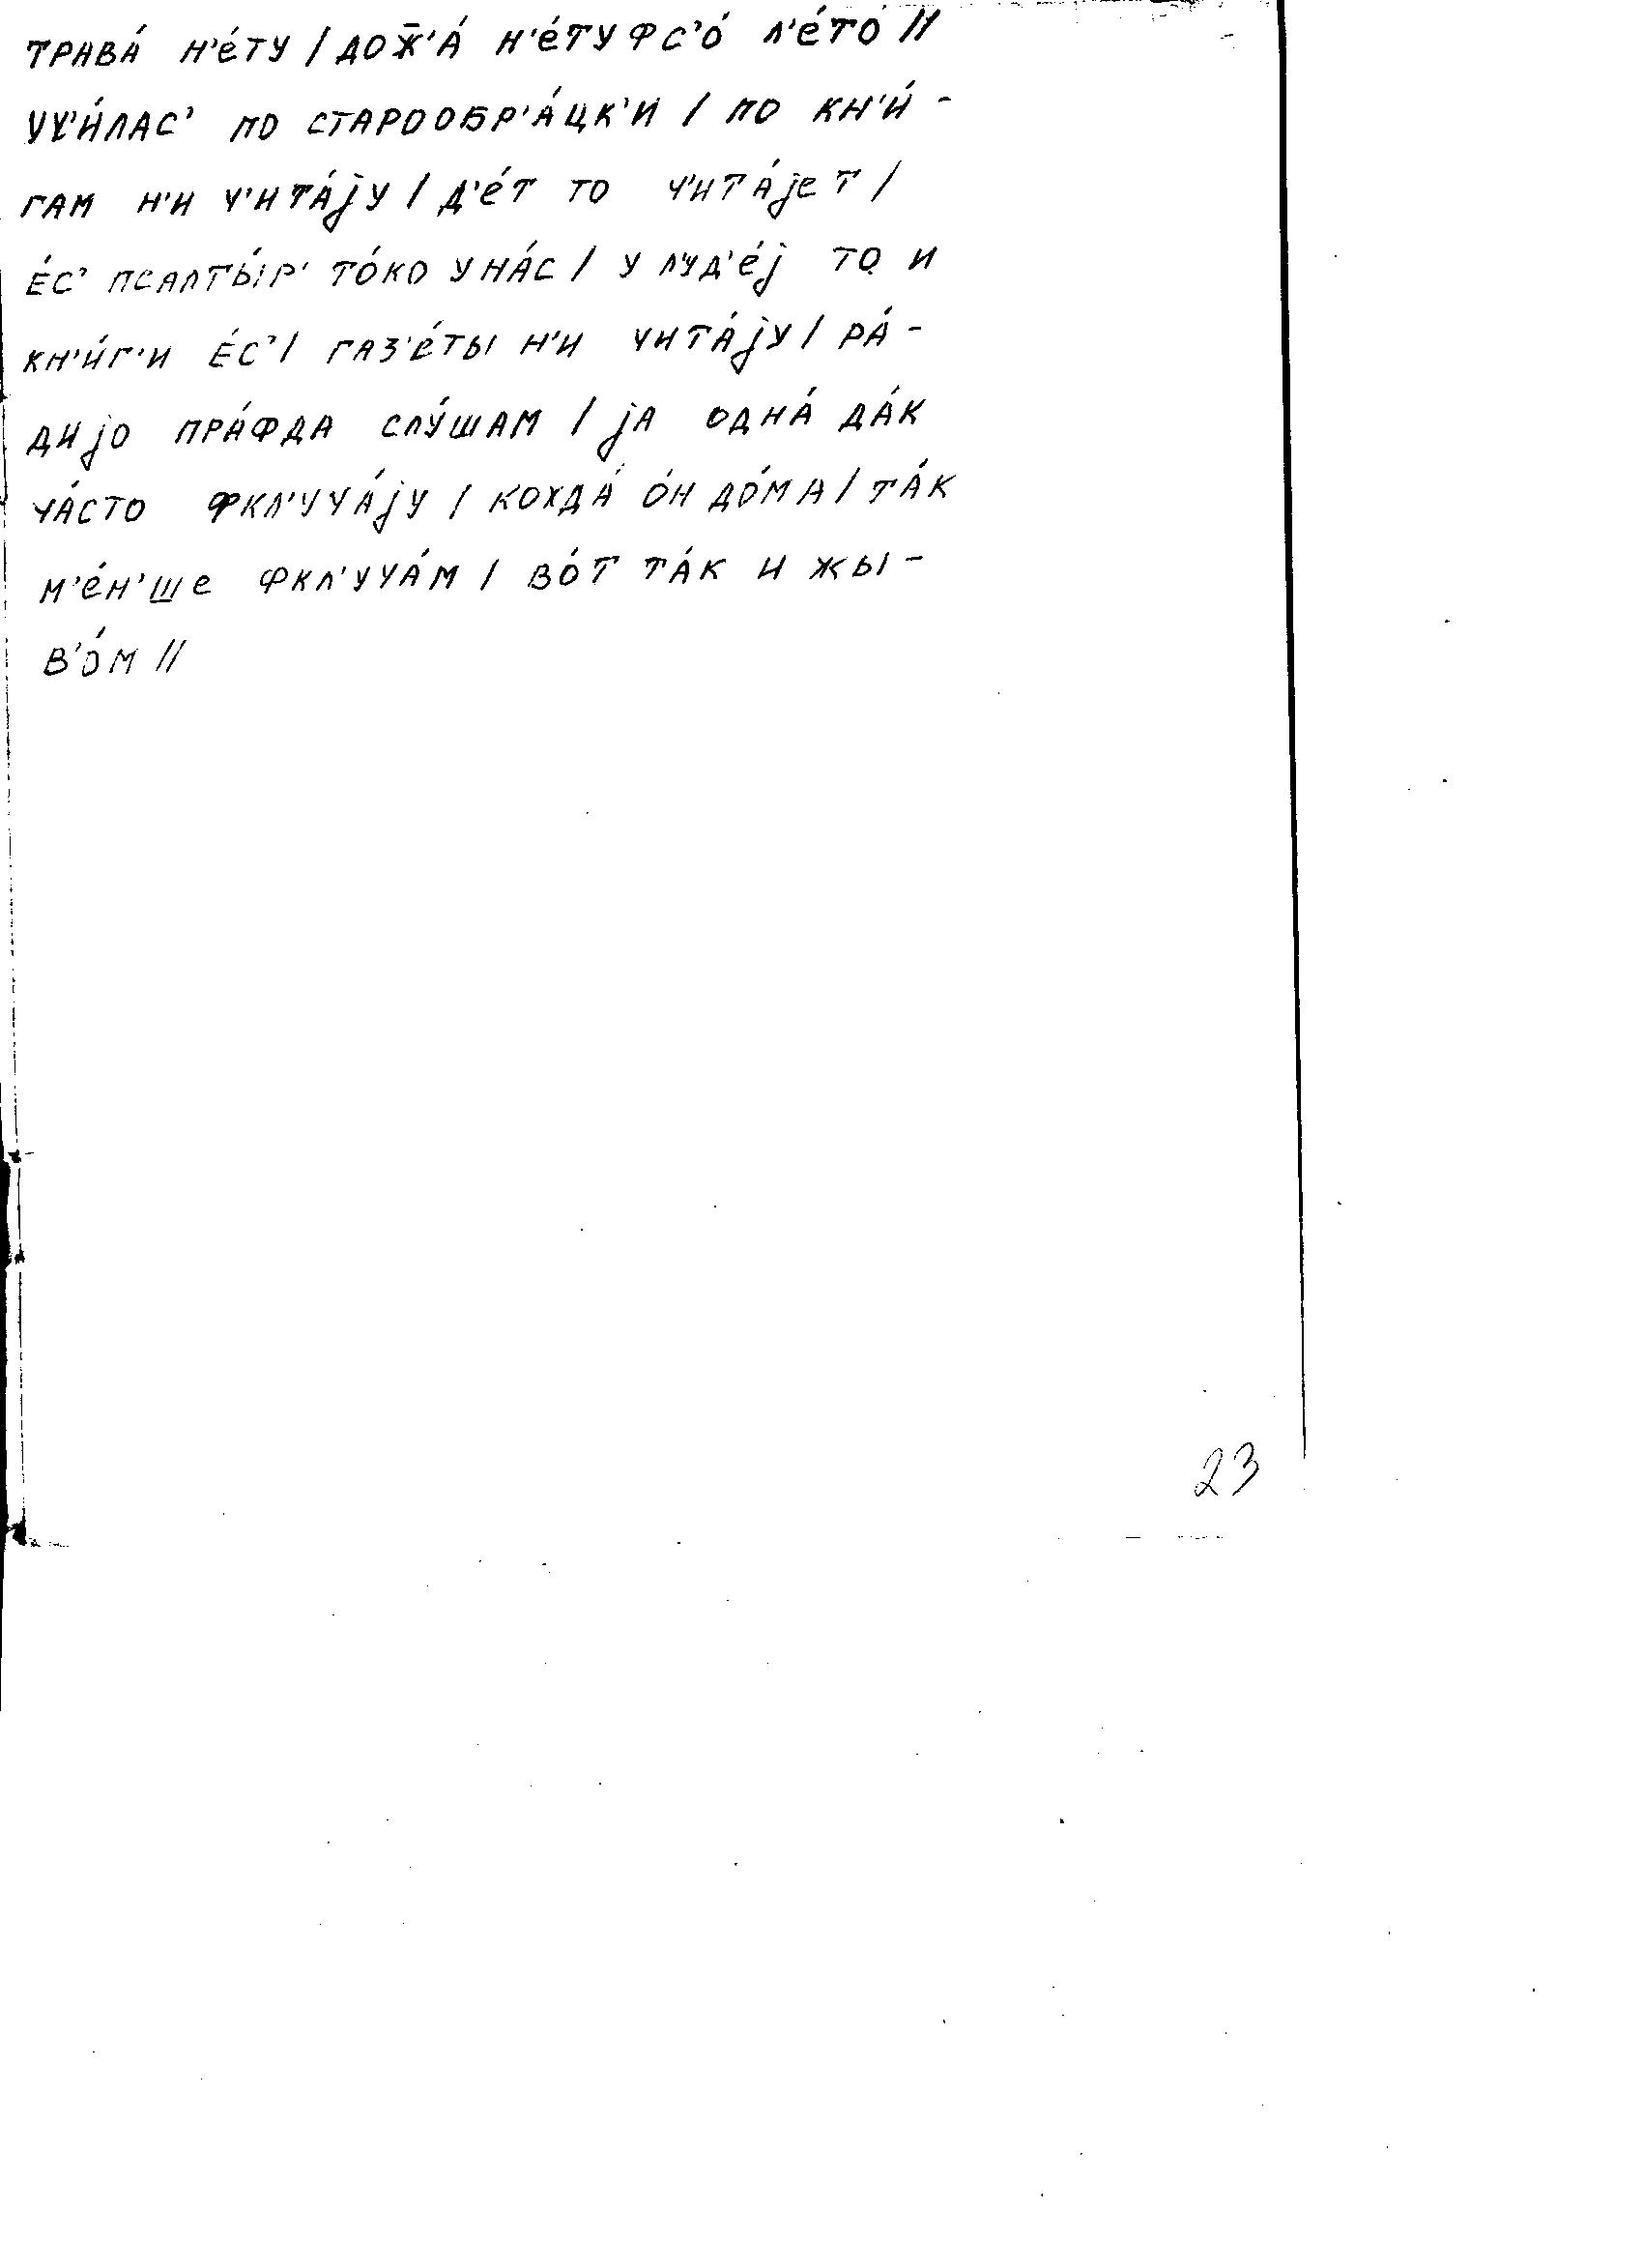 трава́ н'е́ту / дож̄'а́ н'е́ту фс'о́ л'е́то //
уч'и́лас' по старообр'а́цк'и / по кн'и́-
гам н'и ч'ита́jу / д'е́т то ч'ита́jет /
е́с' псалты́р' то́ко у на́с / у л'уд'е́j то и
кн'и́г'и е́с' / газ'е́ты н'и чита́jу / ра́-
диjо пра́фда слу́шам / jа одна́ да́к
ча́сто фкл'уча́jу / кохда́ о́н до́ма / та́к
м'е́н'ше фкл'уча́м / во́т та́к и жы-
в'о́м //
23